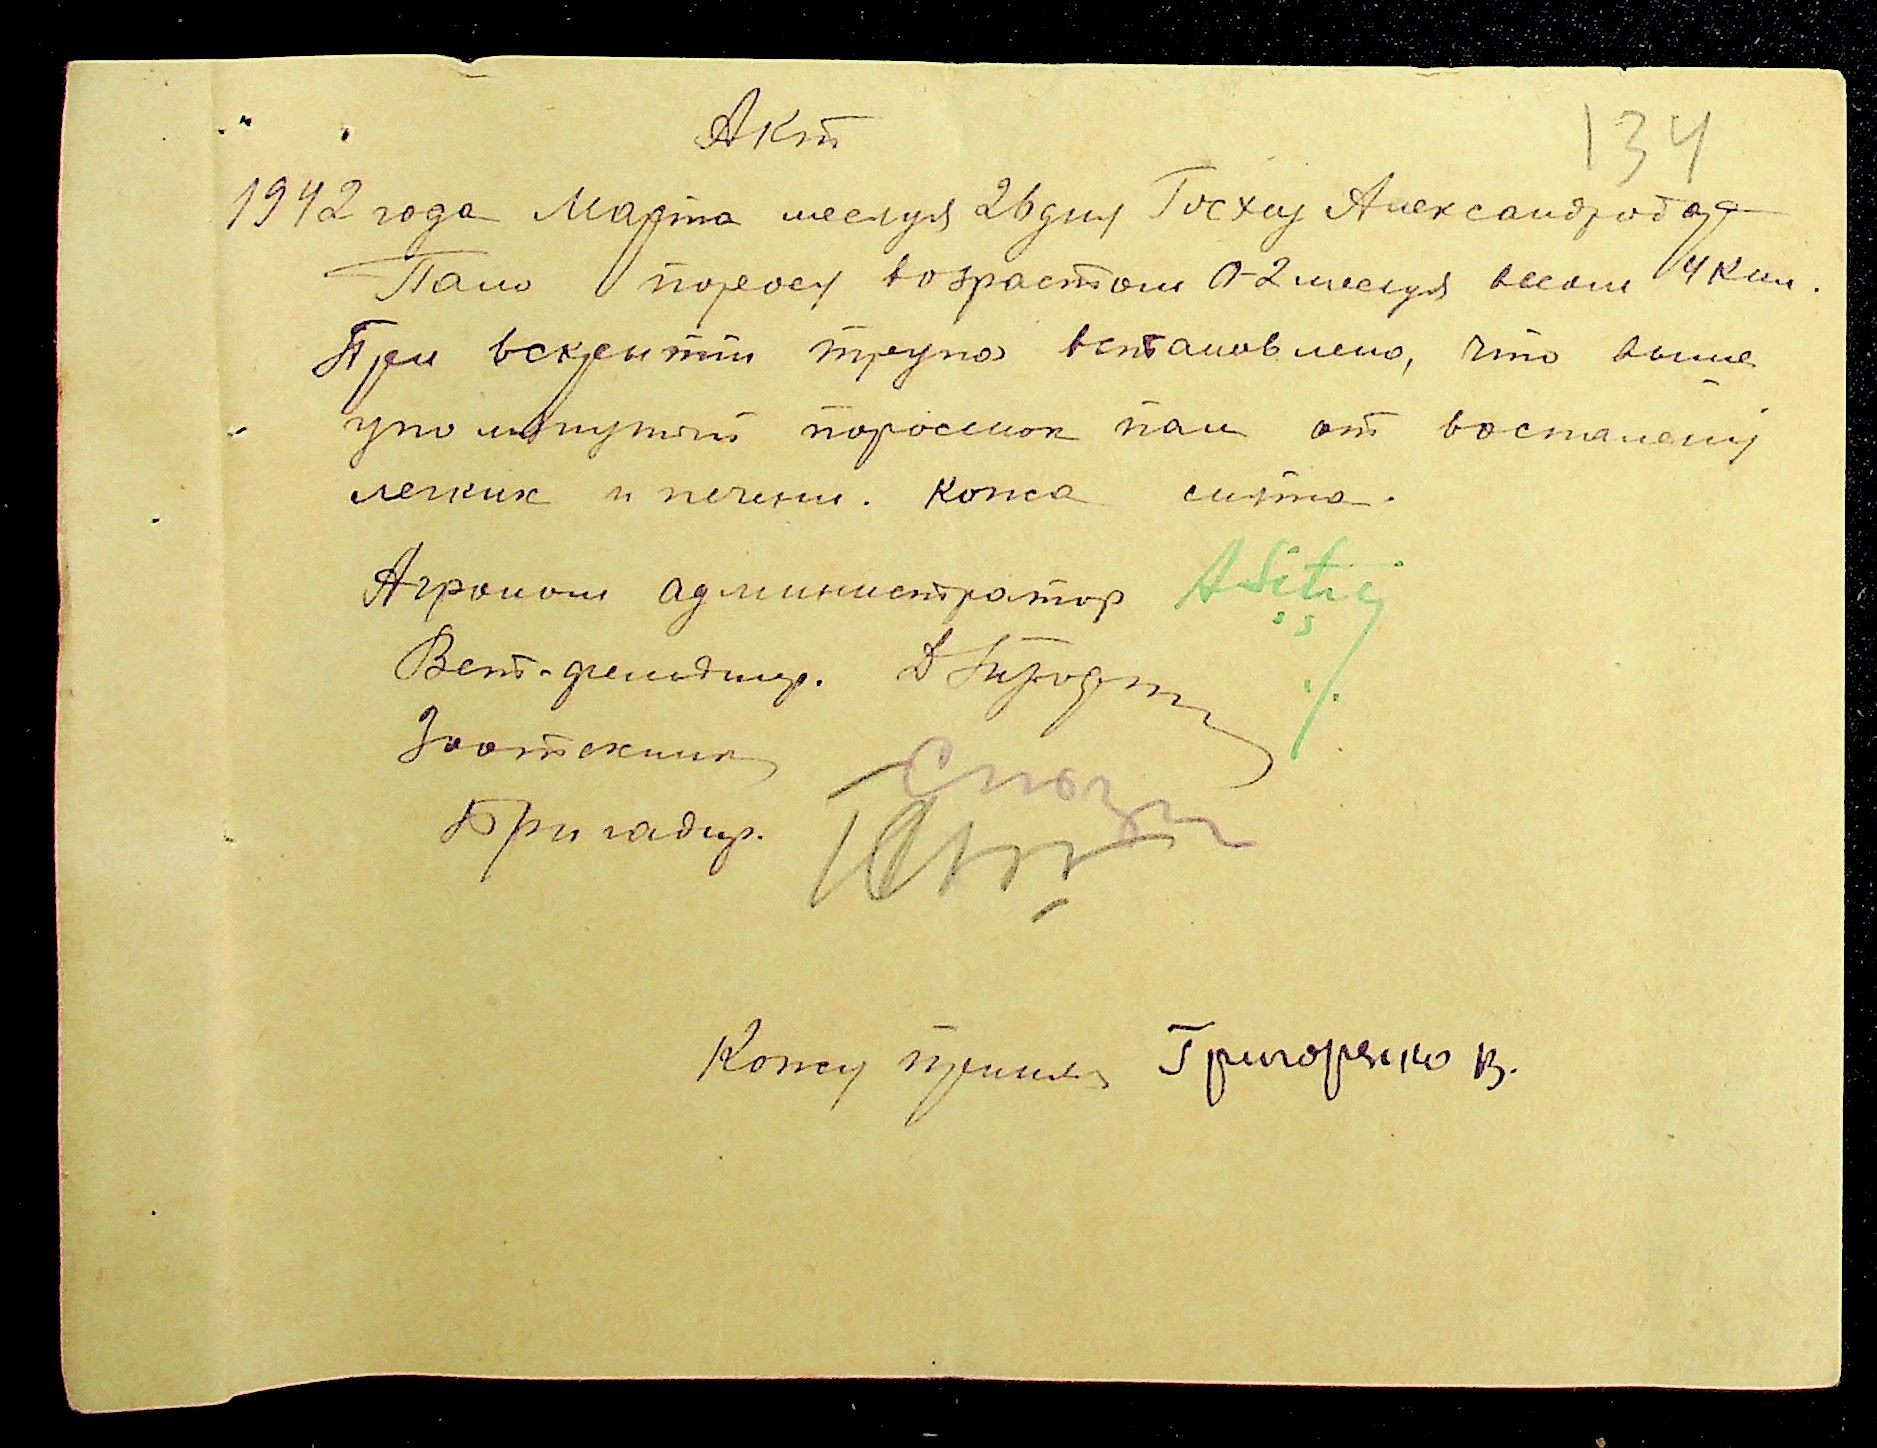 Акт
134
1942 года Марта месяця 26 дня Госхоз Александродар
Пало порося возрастом 0-2 месяця весом 4 кил.
При вскрытии трупа встановлено, что выше
упомянутый поросенок пал от воспаления
легких и печени. Кожа снята.
Агроном администратор
Вет-фельдшер.
Зоотехник
Бригадир.
Кожу принял Григоренко В.